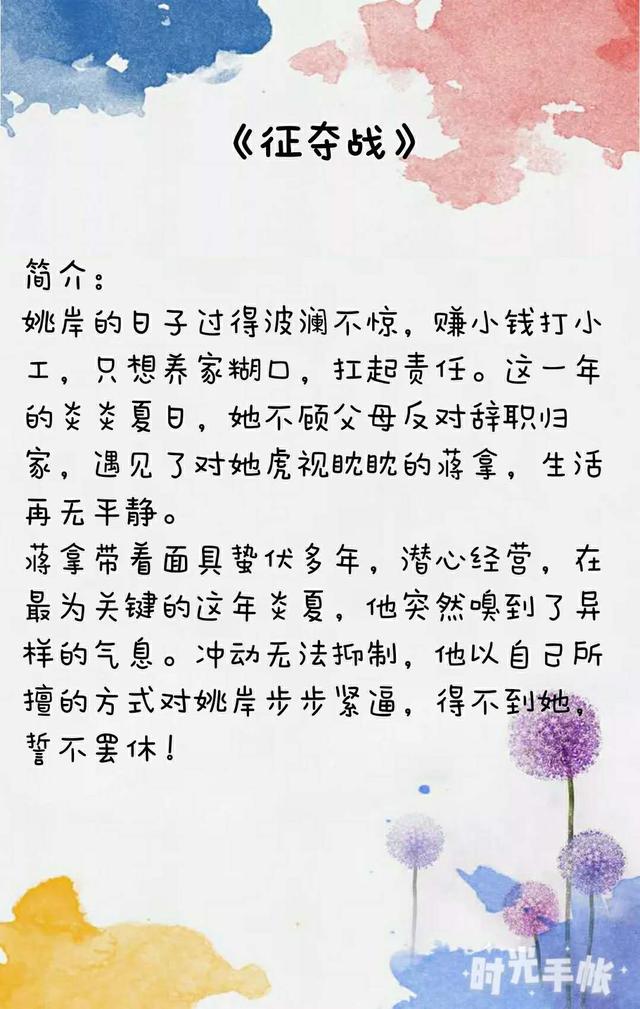 《征夺战》
简介：
姚岸的日子过得波澜不惊，赚小钱打小
工，只想养家糊口，扛起责任。这一年
的炎炎夏日，她不顾父母反对辞职归
家，遇见了对她虎视眈眈的蒋拿，生活
再无平静。
蒋拿带着面具蛰伏多年，潜心经营，在
最为关键的这年炎夏，他突然嗅到了异
样的气息。冲动无法抑制，他以自己所
擅的方式对姚岸步步紧逼，得不到她，
誓不罢休！
时光手帐